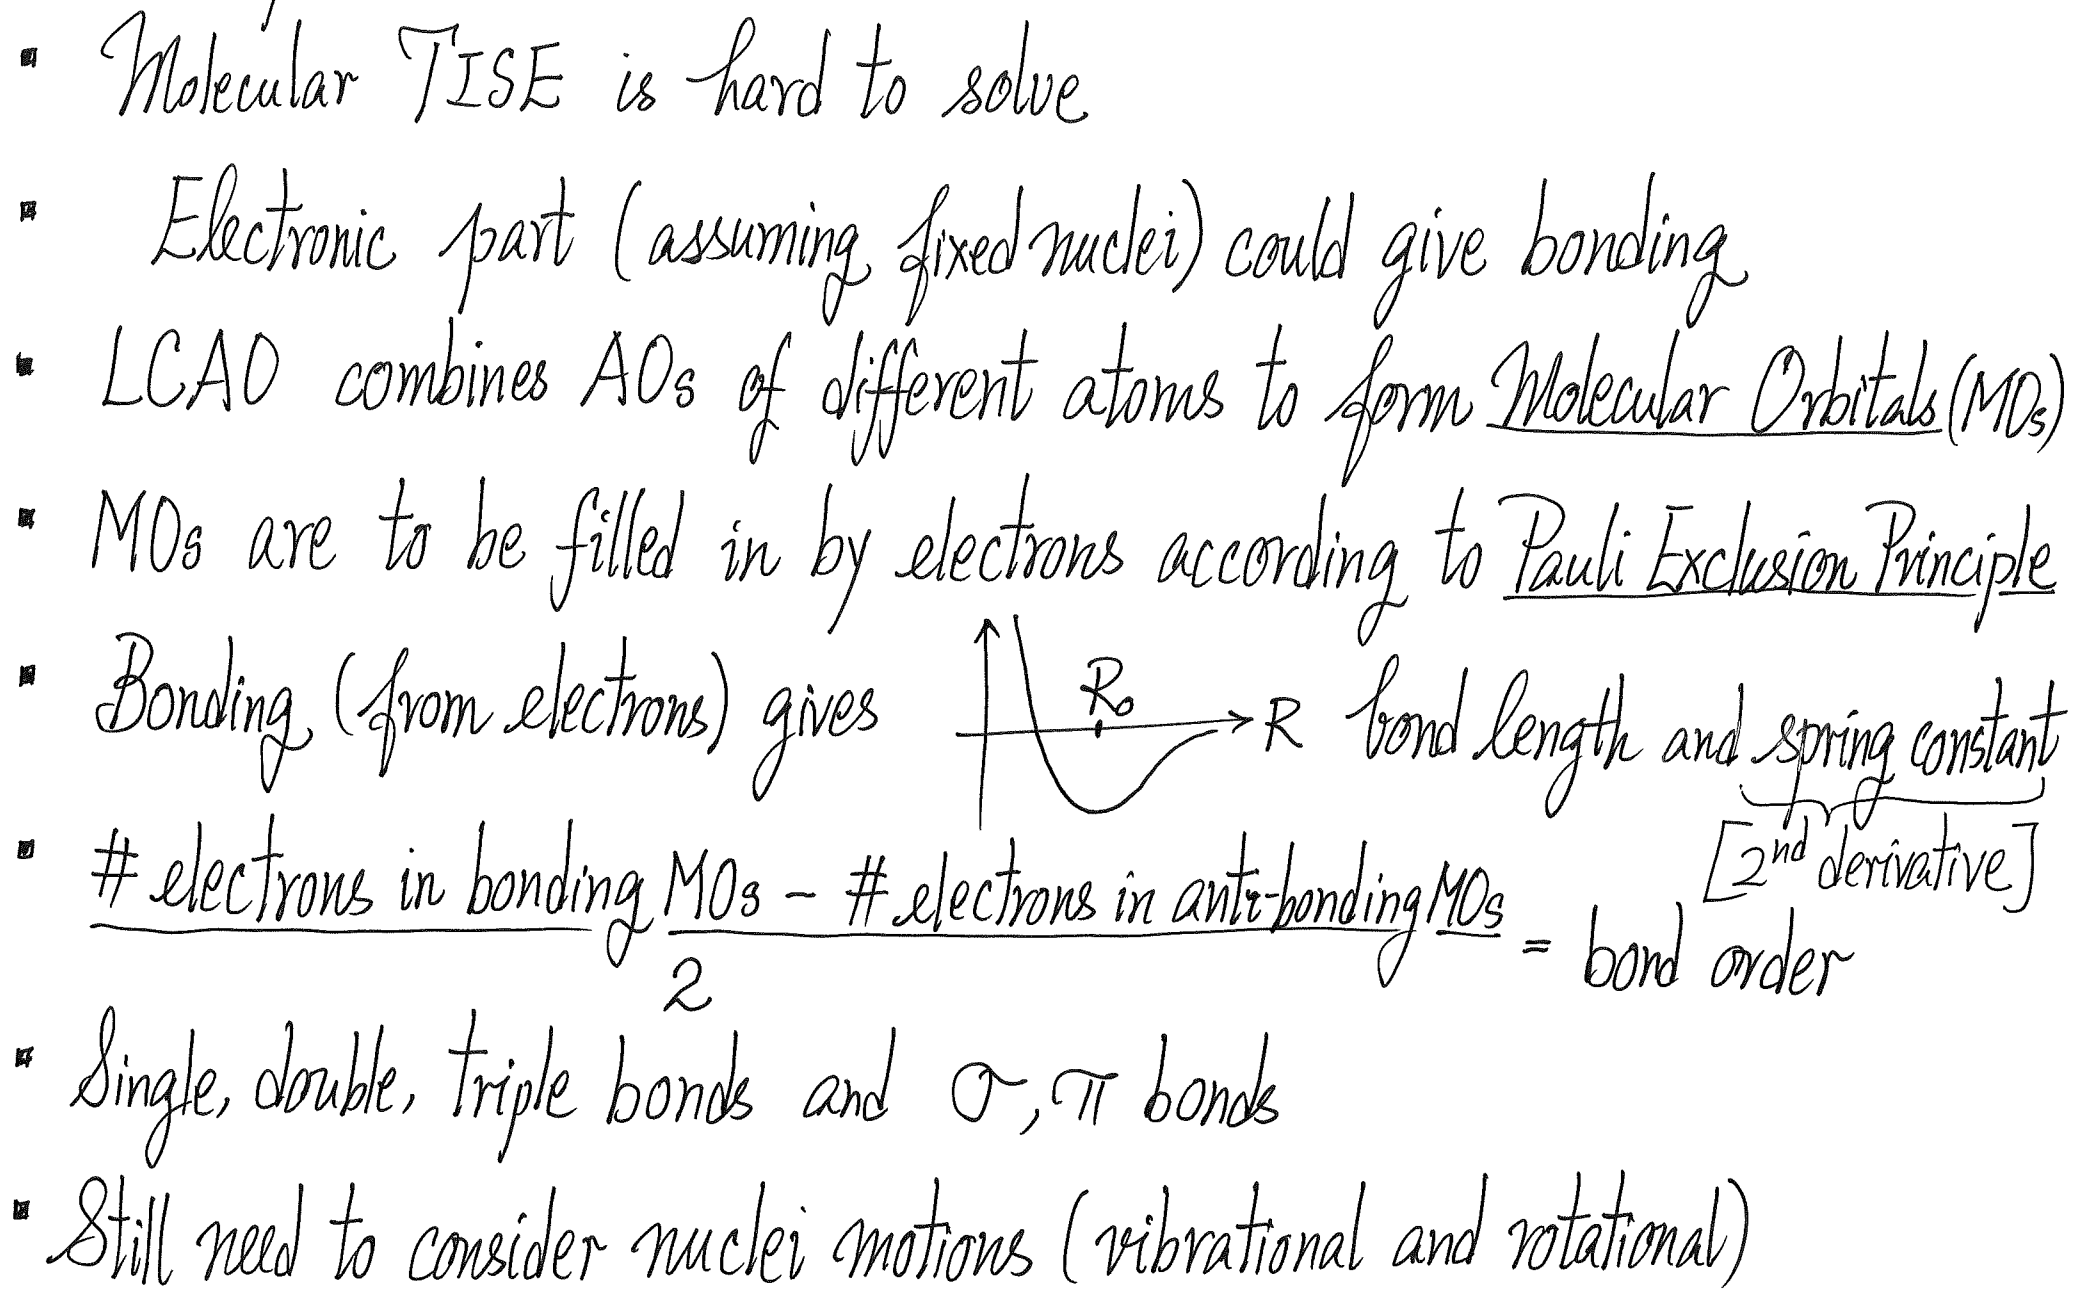 ▪ Molecular TISE is hard to solve
▪ Electronic part (assuming fixed nuclei) could give bonding
▪ LCAO combines AOs of different atoms to form Molecular Orbitals (MOs)
▪ MOs are to be filled in by electrons according to Pauli Exclusion Principle
▪ Bonding (from electrons) gives R₀ R bond length and spring constant
[2nd derivative]
▪ # electrons in bonding MOs - # electrons in anti-bonding MOs
2
= bond order
▪ Single, double, triple bonds and σ, π bonds
▪ Still need to consider nuclei motions (vibrational and rotational)